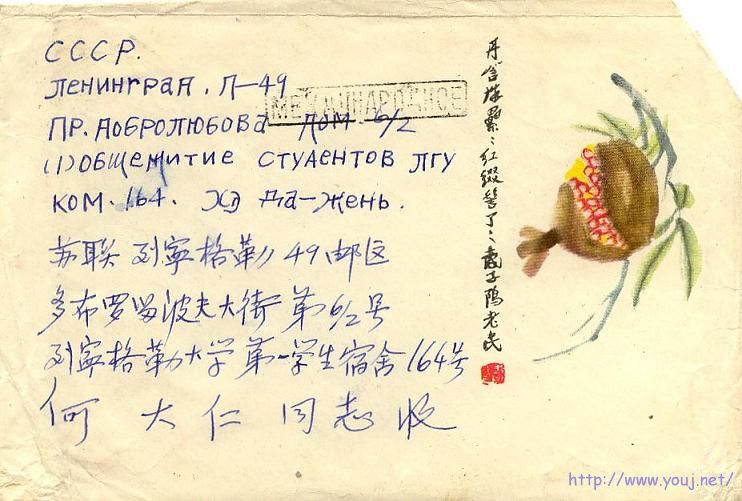 СССР.
Ленинград, Л-49
МЕЖДУНАРОДНОЕ
ПР. ДОБРОЛЮБОВА ДОМ. 6/2
(1) ОБЩЕЖИТИЕ СТУДЕНТОВ ЛГУ
КОМ. 164. ХЭ ДА-ЖЕНЬ.
苏联 列寧格勒 49 邮区
多布罗留波夫大街 第6/2号
列寧格勒大学第一学生宿舍164号
何大仁同志收
老民
http://www.youj.net/